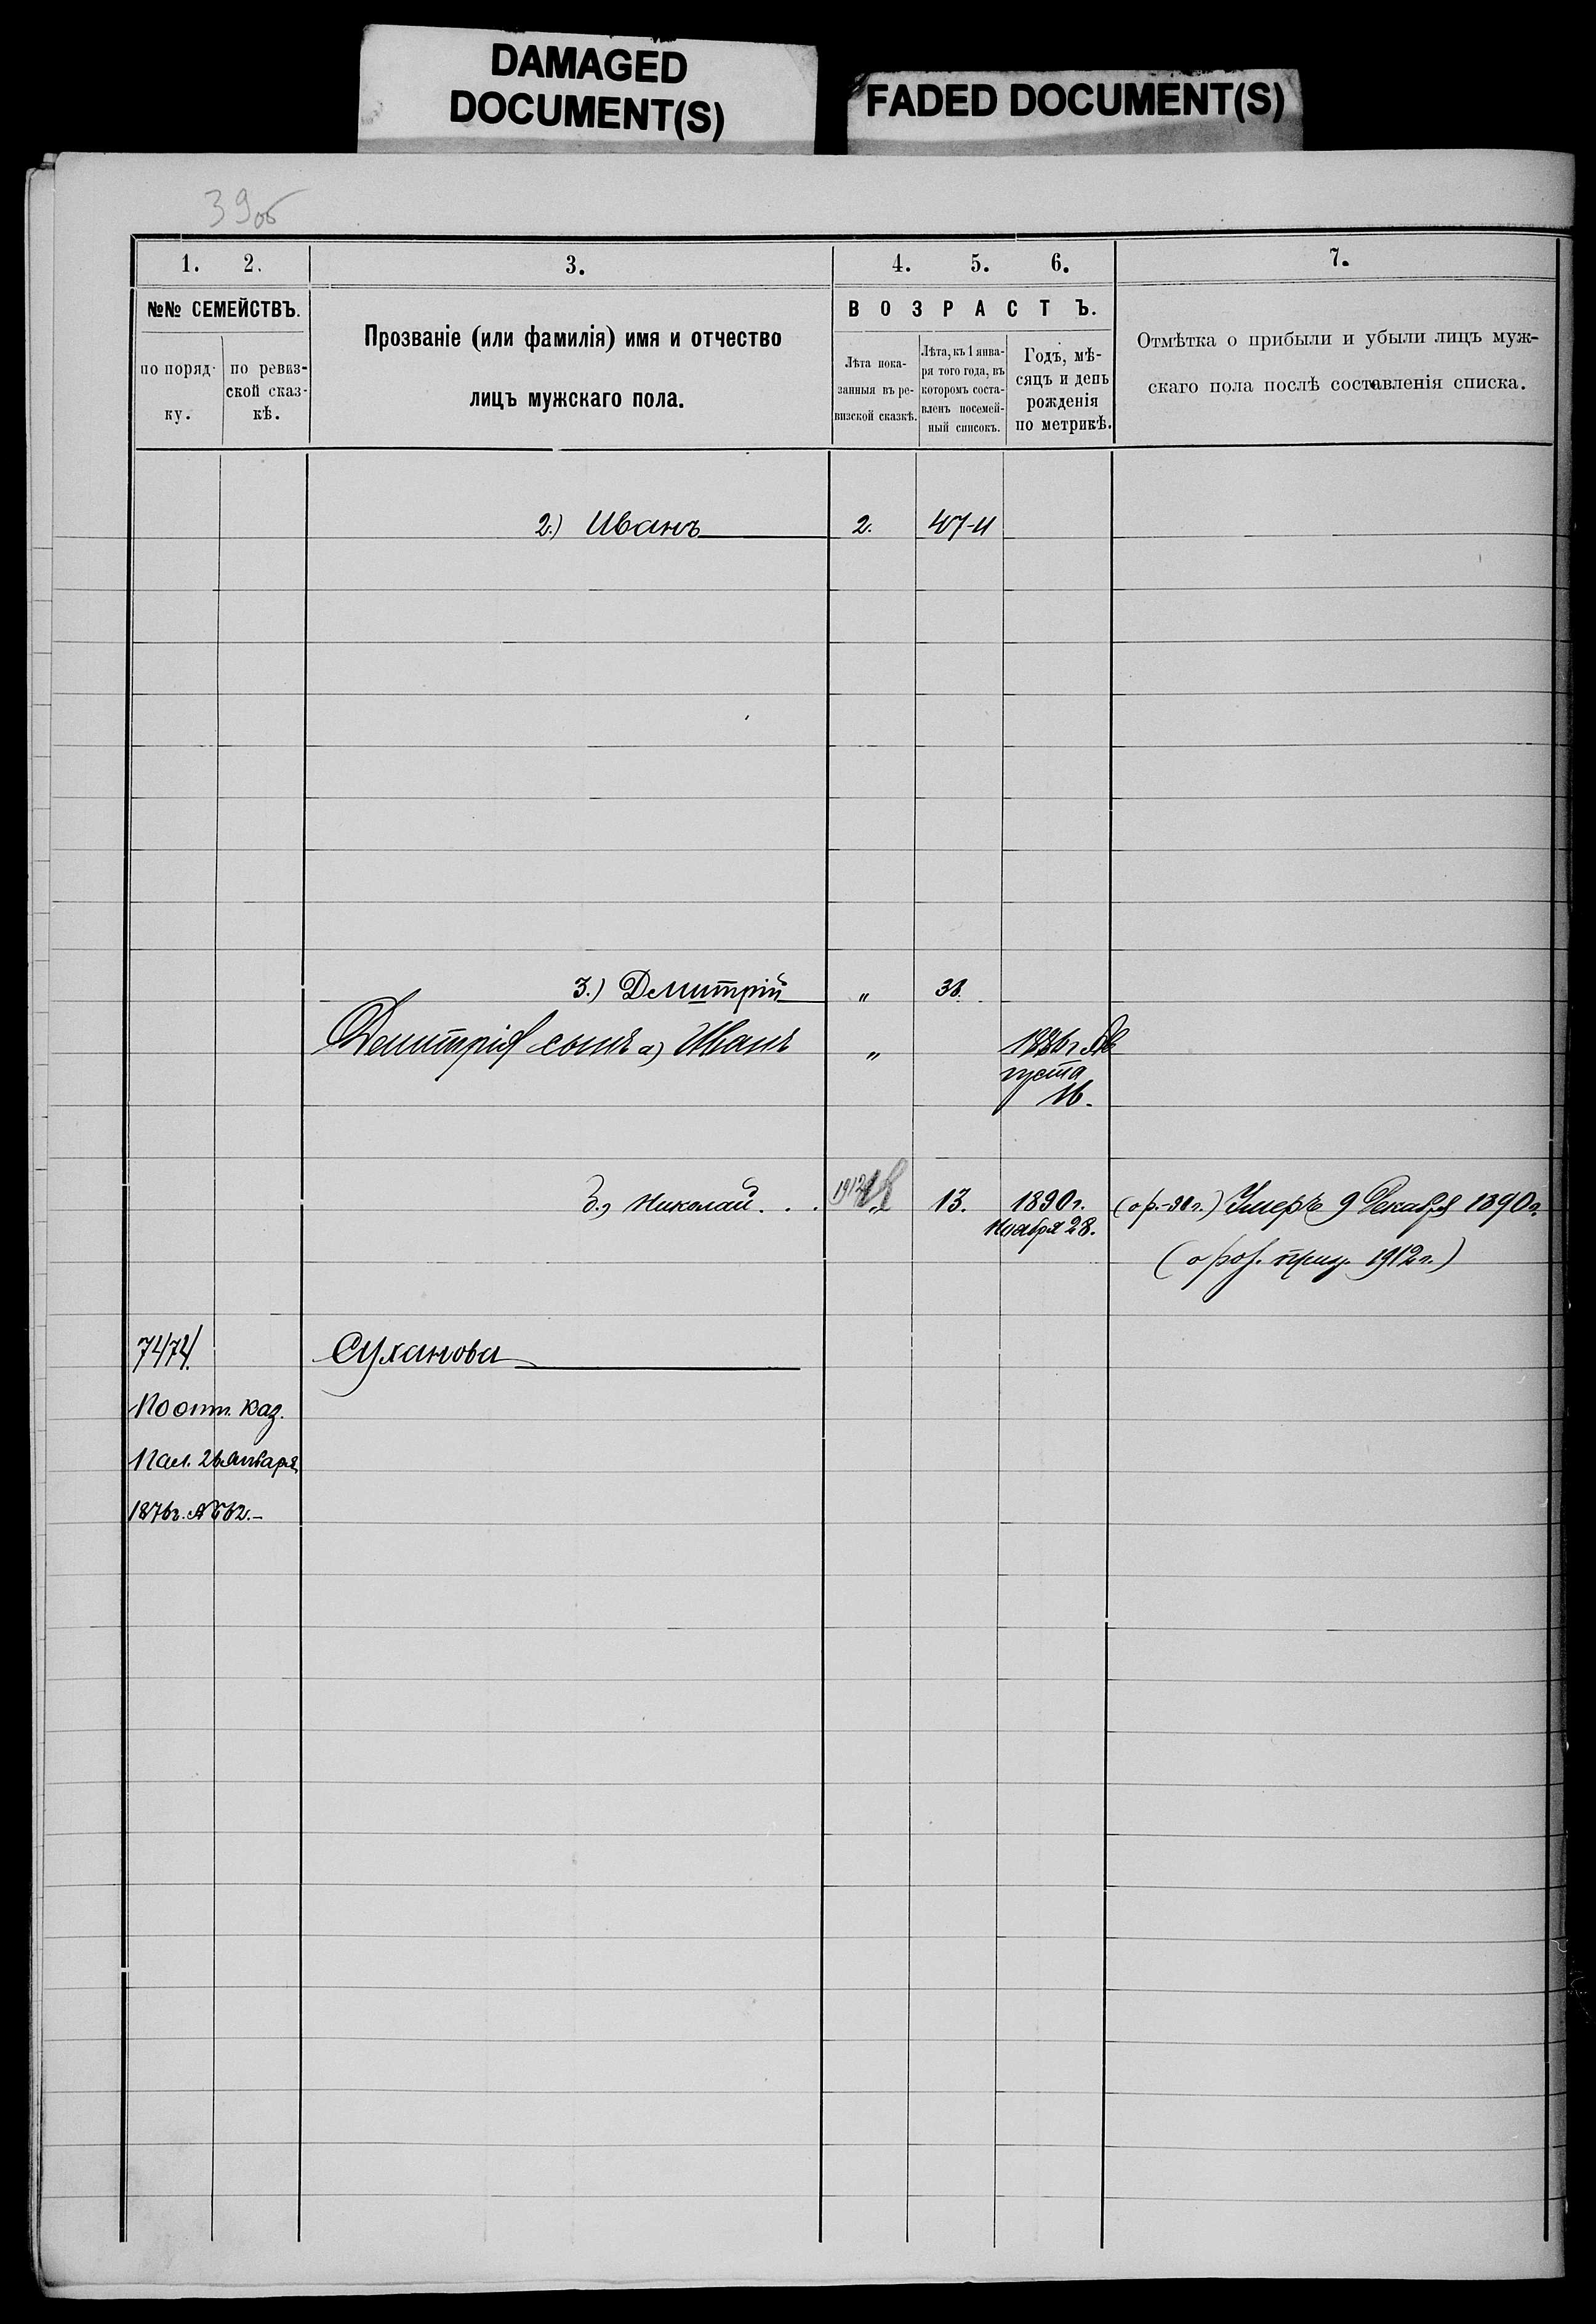 DAMAGED
DOCUMENT(S)
FADED DOCUMENT(S)
39об
1. 2. 3. 4. 5. 6. 7.
№№ СЕМЕЙСТВЪ.
по поряд-
ку.
по ревиз-
ской сказ-
кѣ.
Прозваніе (или фамилія) имя и отчество
лицъ мужскаго пола.
ВОЗРАСТЪ.
Лѣта пока-
занныя въ ре-
визской сказкѣ.
Лѣта, къ 1 янва-
ря того года, въ
которомъ соста-
вленъ посемей-
ный списокъ.
Годъ, мѣ-
сяцъ и день
рожденія
по метрикѣ.
Отмѣтка о прибыли и убыли лицъ муж-
скаго пола послѣ составленія списка.
2.) Иванъ 2. 47-
3.) Дмитрій „
Дмитрія сынъ а) Иванъ „ 1886г Ав
густа
16.
б.) Николай . . . 1912 „ 13. 1890г. Умеръ 9 Декабря 1890г.
Ноября 28.
1912г.)
74/74. Суханова
По отн. Каз.
Пал. 26 Января
1876г. № 62.-